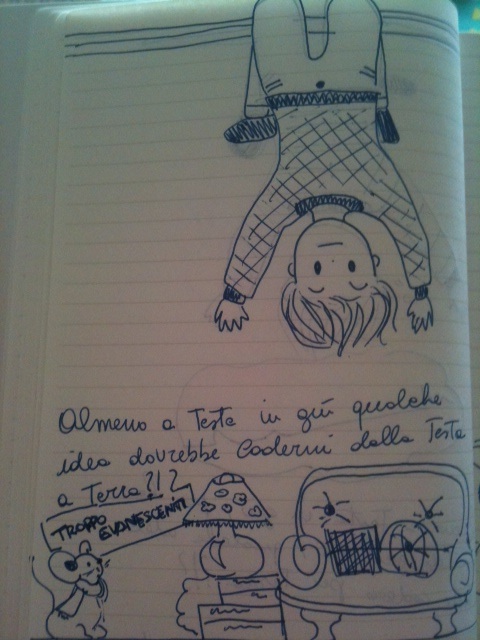 Almeno a Testa in giù qualche
idea dovrebbe Cadermi dalla Testa
a Terra?!?
TROPPO
EVANESCENTI